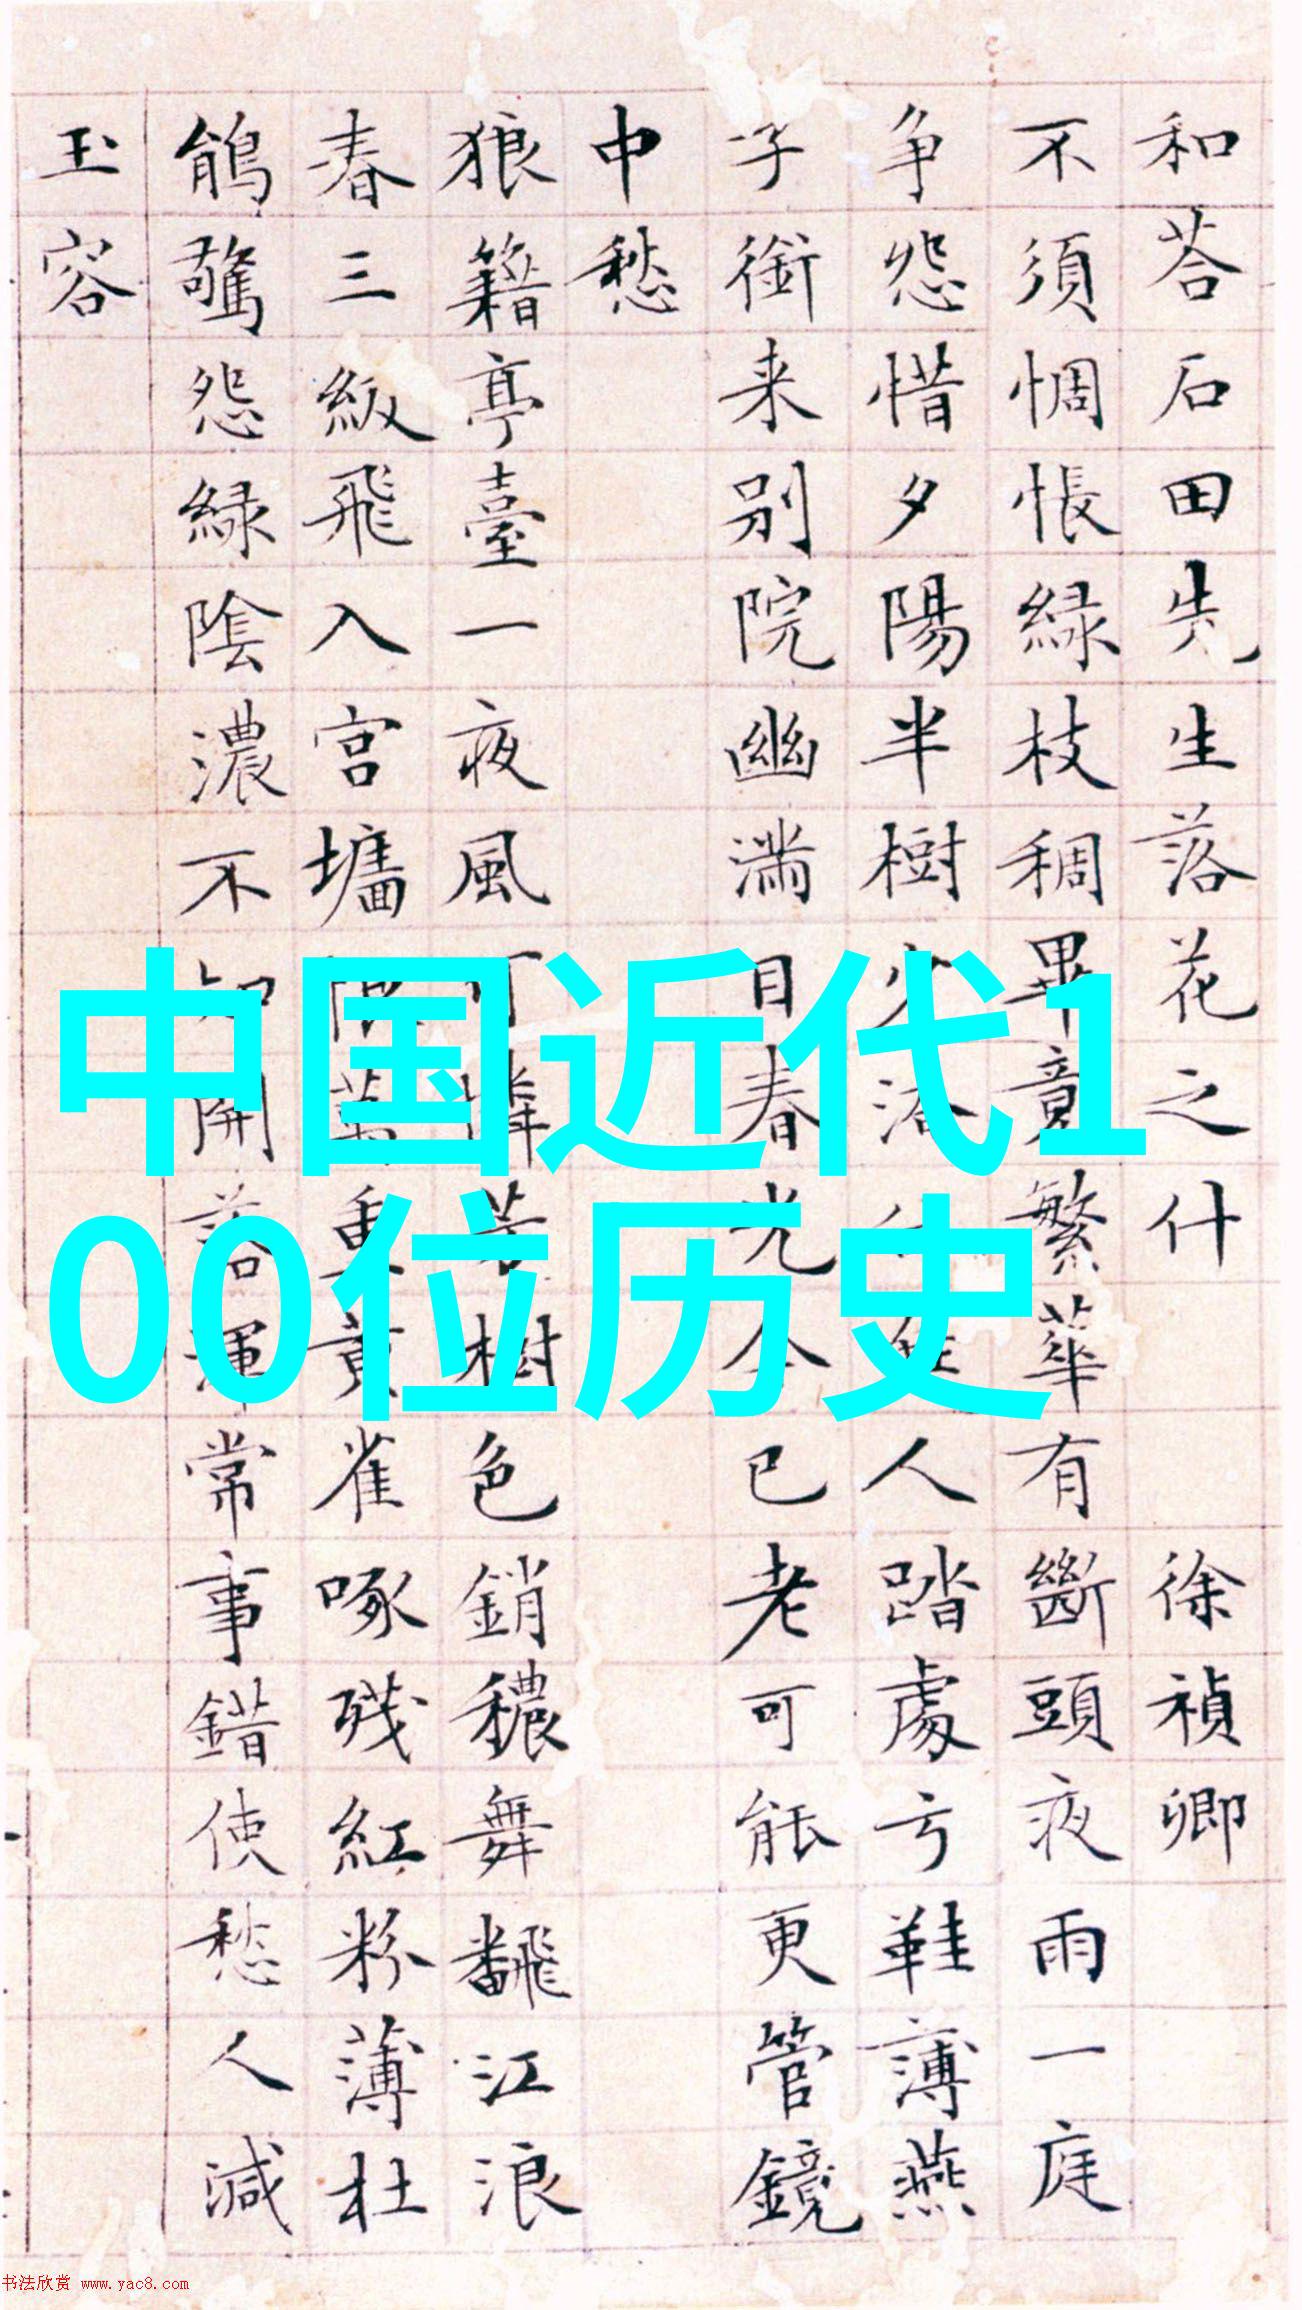 和荅石田先生落花之什 徐禎卿
不須惆悵綠枝稠畢竟繁華有斷頭夜雨一庭
争怨惜夕陽半樹少佳人踏處亏鞋薄燕
子銜来别院幽滿目春光今已老可能更管鏡
中愁
狼籍亭臺一夜風可憐芳樹色銷穠舞飜江浪
春三級飛入宫墻萬重黄雀啄残紅粉薄杜
鵑驚怨綠陰濃不知開落渾常事錯使愁人減
玉容
中国近代1
00位历史
书法欣赏 www.yac8.com